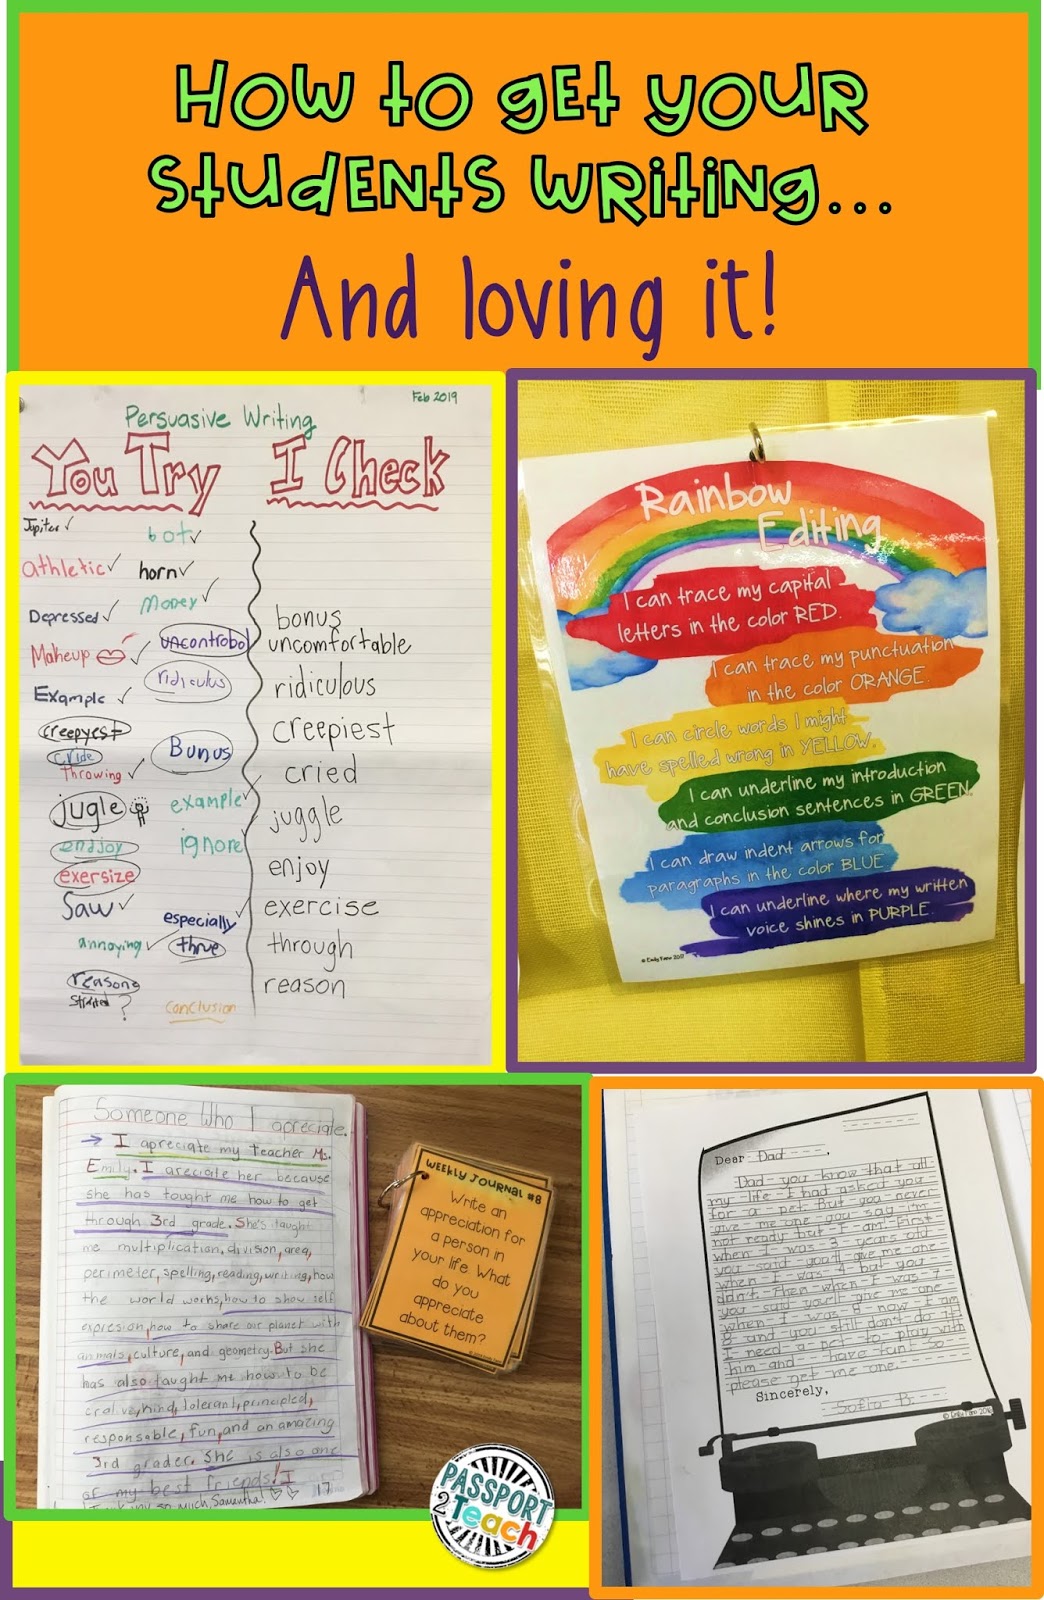 How to get your
students writing...
And loving it!
Feb 2019
Persuasive Writing
You Try
I Check
Jupiter
athletic
Depressed
Makeup
Example
creepyest
cride
throwing
jugle
endjoy
exersize
Saw
annoying
reasone
bot
horn
Money
uncontrobol
ridiculus
Bunus
example
ignore
especially
thrue
conclusion
bonus
uncomfortable
ridiculous
creepiest
cried
juggle
enjoy
exercise
through
reason
Rainbow
Editing
I can trace my capital
letters in the color RED.
I can trace my punctuation
in the color ORANGE.
I can circle words I might
have spelled wrong in YELLOW.
I can underline my introduction
and conclusion sentences in GREEN.
I can draw indent arrows for
paragraphs in the color BLUE
I can underline where my written
voice shines in PURPLE.
Someone Who I apreciate.
I apreciate my teacher Ms.
Emily. I areciate her because
she has tought me how to get
through 3rd grade. She's taught
me multiplication, division, area,
perimeter, spelling, reading, writing, how
the world works, how to show self
expresion, how to share our planet with
animals, culture, and geometry. But she
has also taught me how to be
kind, tolerant, principled,
responsable, fun, and an amazing
3rd grader. She is also one
of my best friends! I
so much, Samantha! 17
WEEKLY JOURNAL #8
Write an
appreciation for
a person in
your life. What
do you
appreciate
about them?
PASSPORT
2
Teach
Dear Dad,
Dad you know that all
my life I had asked you
for a pet. But you never
give me one you say i'm
not ready but I am. First
when I was 3 years old
you said you'll give me one
when I was 4 but you
didn't. Then when I was 7
you said you'll give me one
when I was 8 now I am
8 and you still don't do it!
I need a pet to play with
him and have fun so
please get me one.
Sincerely,
Sofia B.